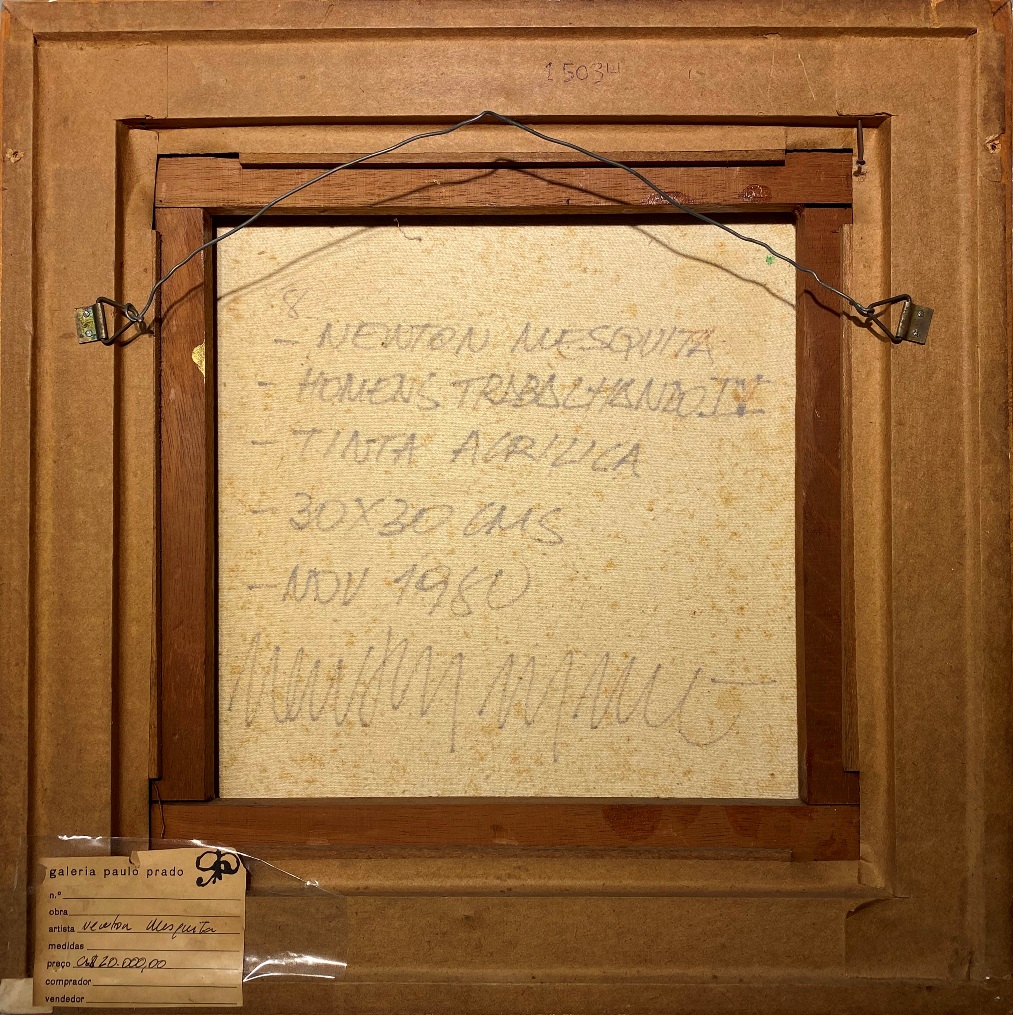 15034
8
- NEWTON MESQUITA
- HOMENS TRABALHANDO IV
- TINTA ACRILICA
- 30X30 CMS
- NOV 1980
galeria paulo prado
n.º
obra
artista newton Mesquita
medidas
preço 20.000,00
comprador
vendedor